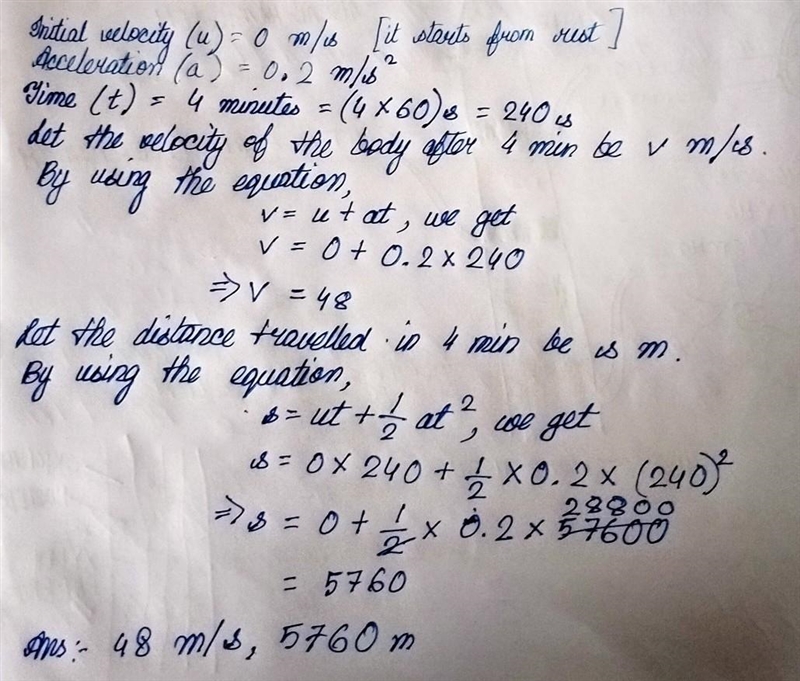 Initial velocity (u) = 0 m/s [it starts from rest]
Acceleration (a) = 0.2 m/s²
Time (t) = 4 minutes = (4 × 60) s = 240 s
Let the velocity of the body after 4 min be v m/s.
By using the equation,
v = u + at, we get
v = 0 + 0.2 × 240
⇒ v = 48
Let the distance travelled in 4 min be s m.
By using the equation,
s = ut + 1/2 at², we get
s = 0 × 240 + 1/2 × 0.2 × (240)²
28800
⇒ s = 0 + 1/2 × 0.2 × 57600
= 5760
Ans:- 48 m/s, 5760 m